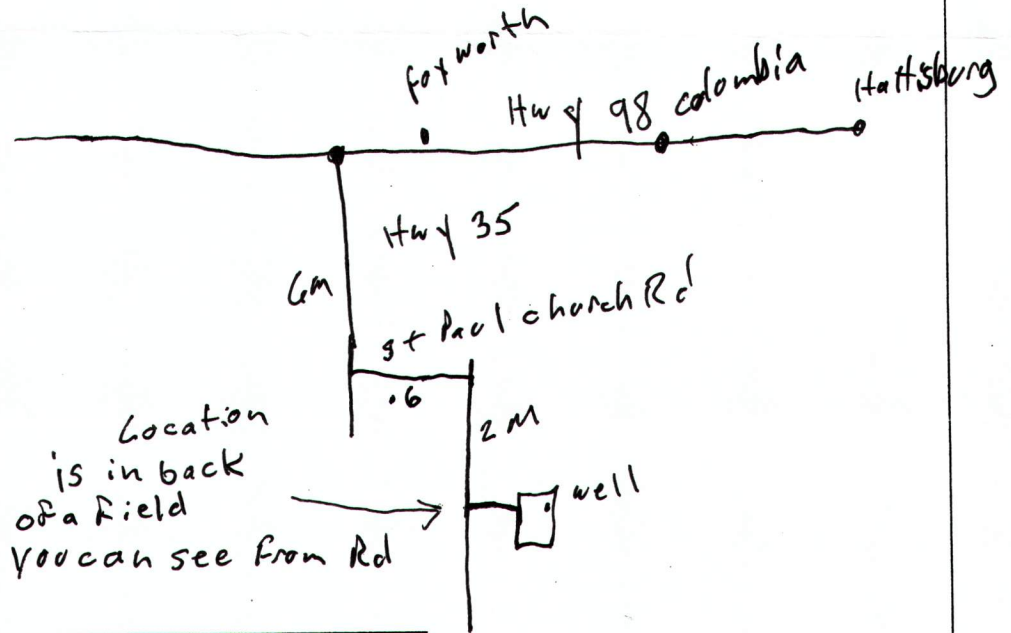 foxworth
Hwy 98 colombia
Hattisburg
Hwy 35
6m
st Paul church Rd
.6
2M
Location
is in back
of a Field
you can see From Rd
well